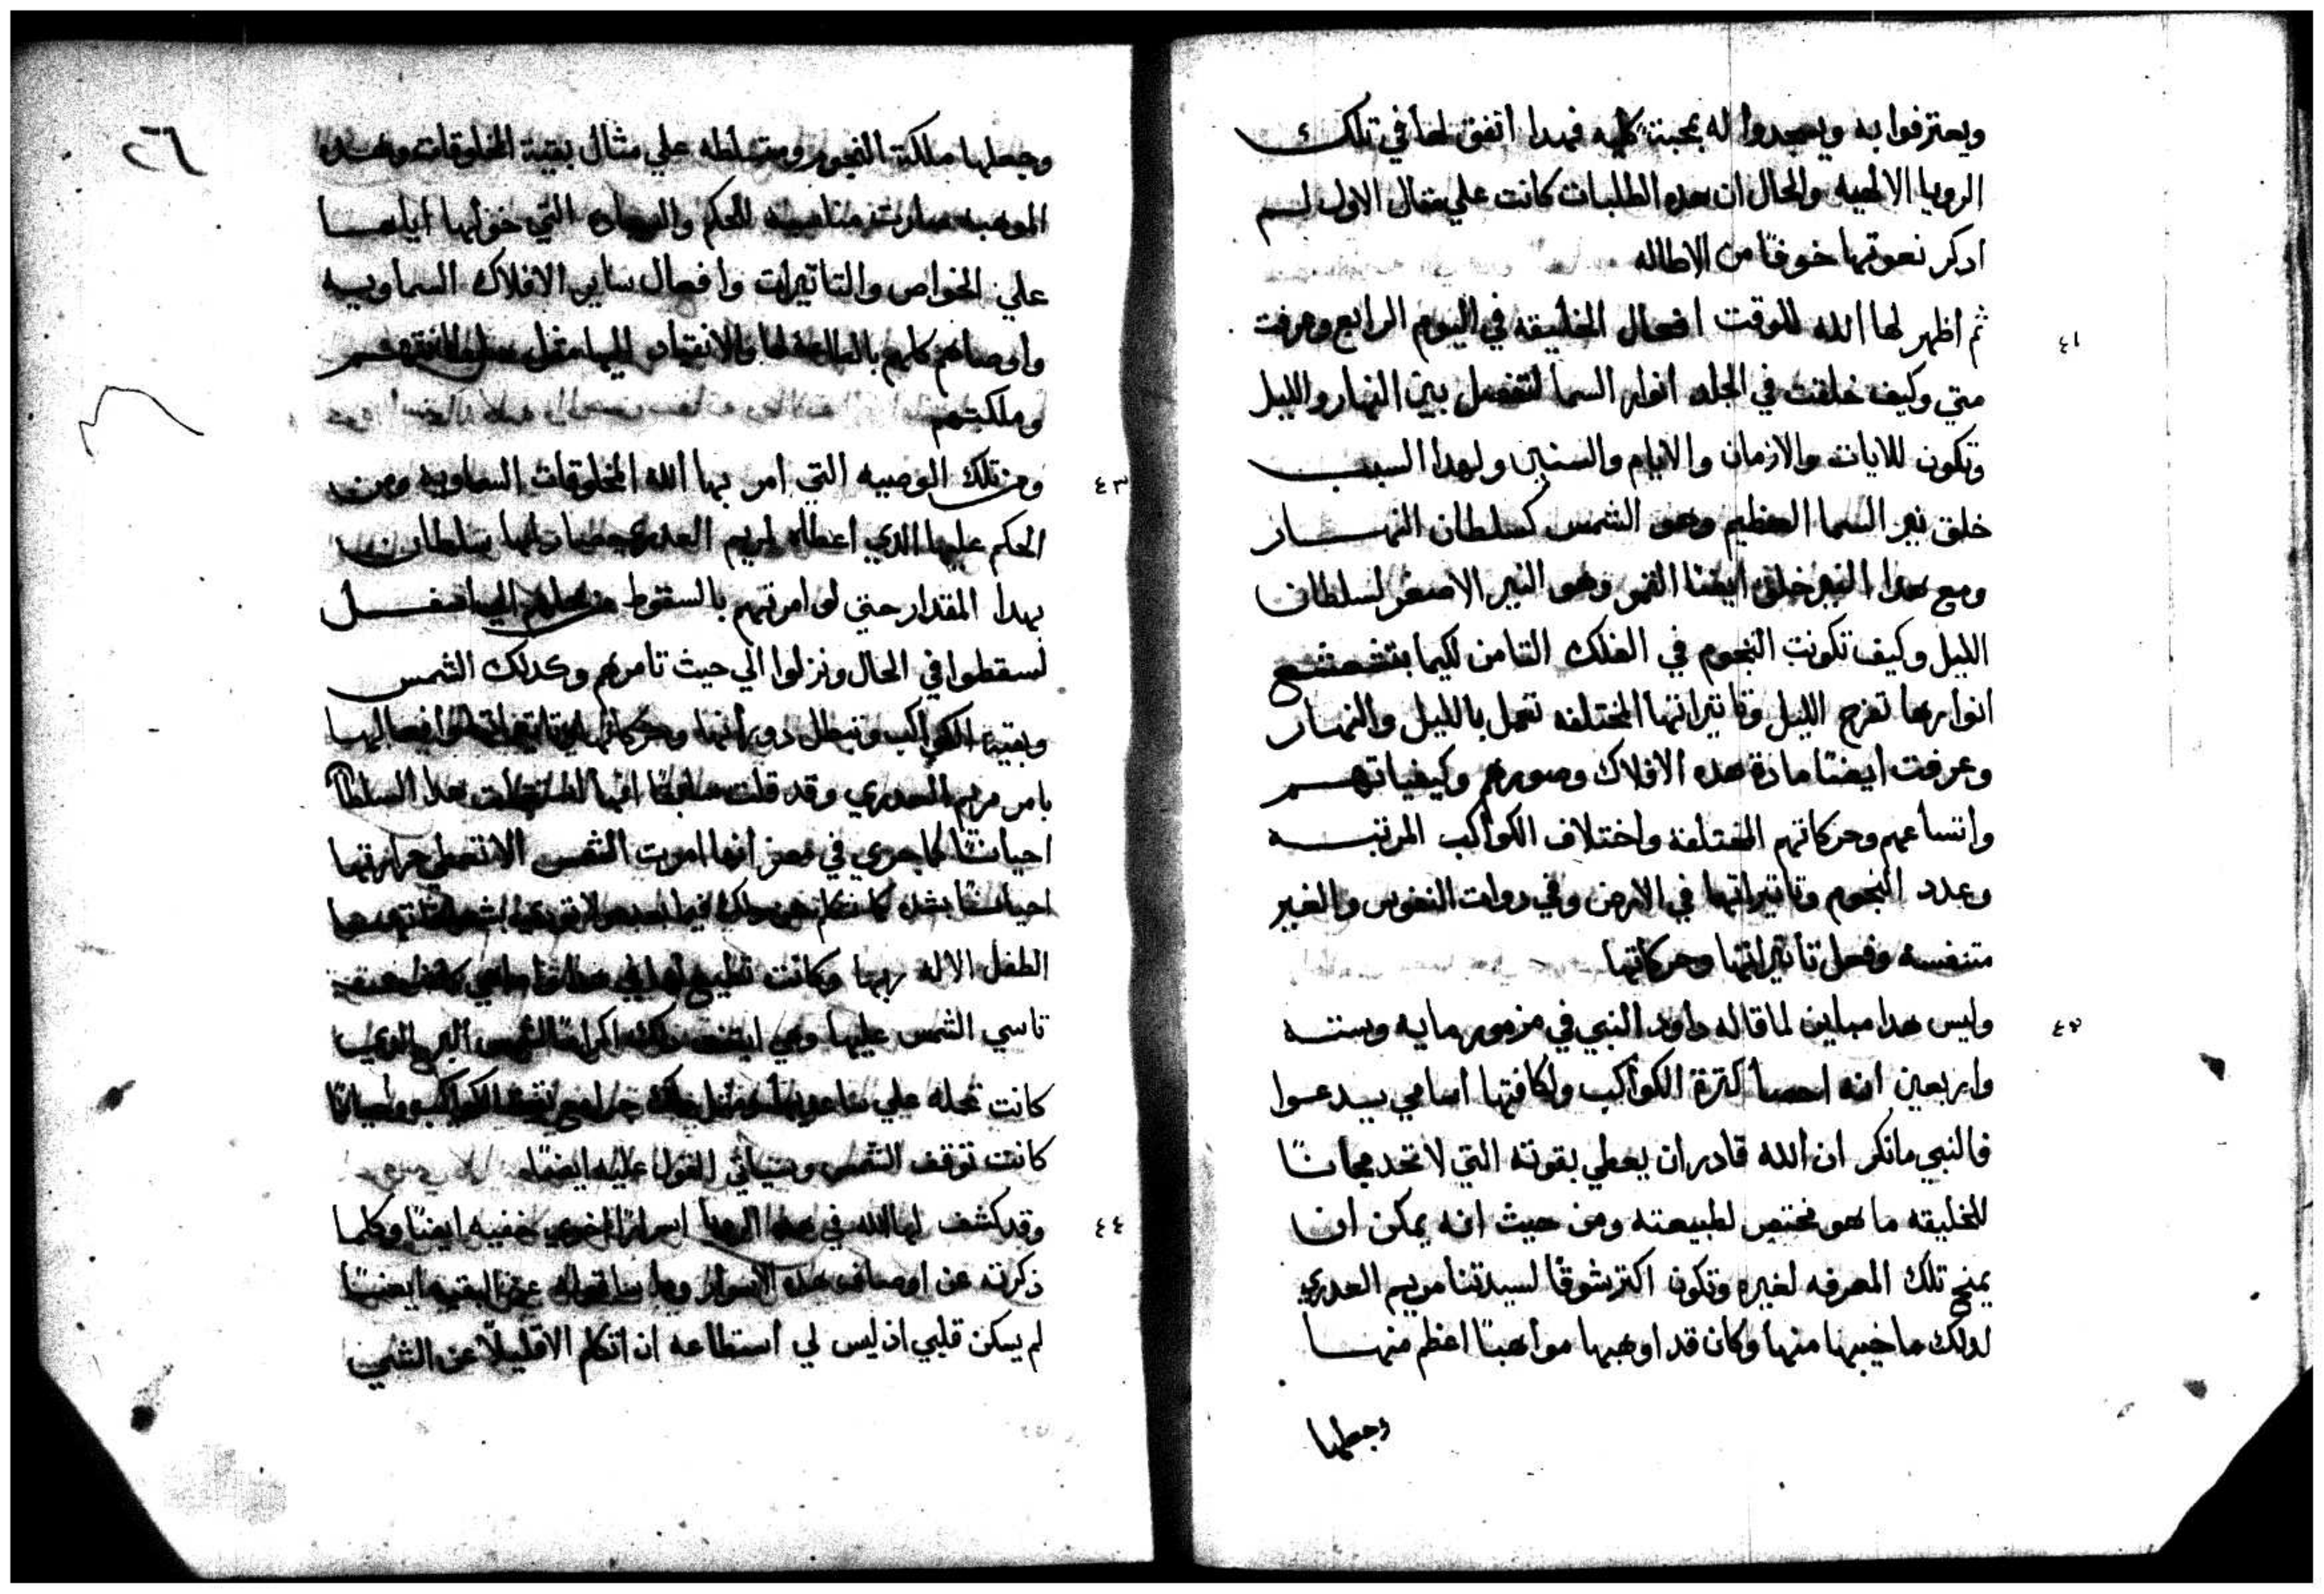 ويعترفوا به ويسجدوا له بمحبة كليه فهدا اتفق لها في تلك
الرويا الالهيه والحال ان هده الطلبات كانت علي مثال الاول لم
ادكر نعوتها خوفًا من الاطاله
٤١
ثم اظهر لها الله للوقت افعال الخليقه في اليوم الرابع وعرفت
متي وكيف خلقت في الجلد انوار السما لتفصل بين النهار والليل
وتكون للايات والازمان والايام والسنين ولهدا السبب
خلق نير السما العظيم وهو الشمس كسلطان النهار
ومع هدا النير خلق ايضا القمر وهو النير الاصغر لسلطان
الليل وكيف تكونت النجوم في الفلك التامن لكيما بتشعشع
انوارها تفرح الليل وتاتيراتها المختلفه تعمل بالليل والنهار
وعرفت ايضًا مادة هده الافلاك وصورهم وكيفياتهم
واتساعهم وحركاتهم المختلفة واختلاف الكواكب المرتبه
وعدد النجوم وتاتيراتها في الارض وفي دوات النفوس والغير
متنفسه وفعل تاتيراتها وحركاتها
٤٢
وليس هدا مباين لما قاله داود النبي في مزمور مايه وسته
واربعين انه احصا كترة الكواكب ولكافتها اسامي يدعوا
فالنبي ما نكر ان الله قادر ان يعطي بقوته التي لا تحد مجانًا
للخليقه ما هو مختص لطبيعته ومن حيث انه يمكن ان
يمنح تلك المعرفه لغيره وتكون اكتر شوقًا لسيدتنا مريم العدري
لدلك ما خيبها منها وكان قد اوهبها مواهبًا اعظم منها
وجعلها
٢٦
وجعلها ملكة النجوم ومتسلطه علي مثال بقية المخلوقات وهده
الموهبه صارت مناسبه للحكم والسياده التي خولها اياها
علي الخواص والتاتيرات وافعال ساير الافلاك السماويه
واوصاهم كلهم بالطاعه لها والانقياد اليها مثل سلطانتهم
وملكتهم
٤٣
ومن تلك الوصيه التي امر بها الله المخلوقات السماويه ومن
الحكم عليها الدي اعطاه لمريم العدري صار لها سلطان
بهدا المقدار حتي لو امرتهم بالسقوط من محلهم الي اسفل
لسقطوا في الحال ونزلوا الي حيث تامرهم وكدلك الشمس
وبقية الكواكب وتبطل دورانها وحركاتها وتاتيراتها وافعالها
بامر مريم العدري وقد قلت سابقًا انها استعملت هدا السلطان
احيانًا كما جري في مصر انها امرت الشمس الا تعطي حرارتها
احيانًا بشده كما نتكلم عن دلك فيما بعد
الطفل الاله ربها وكانت تطيع لها في
تاسي الشمس عليها وهي ايضًا اكرامًا لشمس البر الدي
كانت تحمله علي ساعديها الكواكب واحيانًا
كانت توقف الشمس وسياتي القول عليه ايضًا
٤٤
وقد كشف لها الله في هده الرويا اسرارًا اخري خفيه ايضًا وكلما
ذكرته عن اوصاف هده الاسرار وما ساقوله عن البقيه ايضًا
لم يسكن قلبي اذ ليس لي استطاعه ان اتكلم الا قليلًا عن الشي